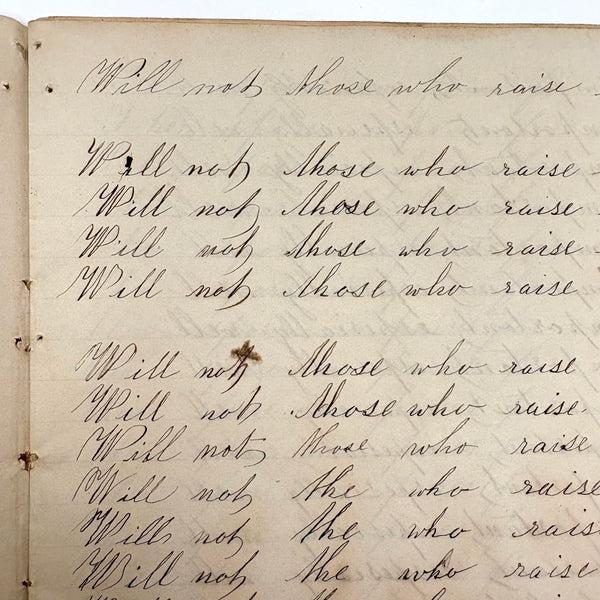 Will not those who raise
Will not those who raise
Will not those who raise
Will not those who raise
Will not those who raise
Will not those who raise
Will not those who raise
Will not those who raise
Will not the who raise
Will not the who raise
Will not the who raise